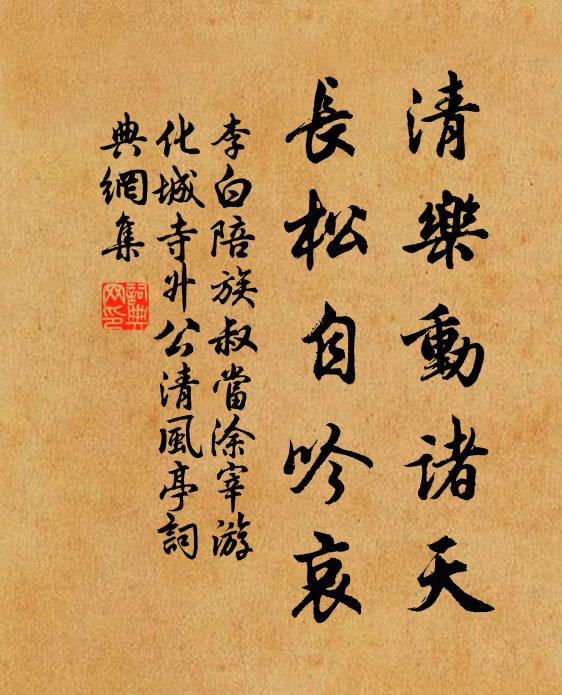 清樂動諸天
長松自吟哀
李白陪族叔當涂宰游
化城寺升公清風亭詞
典網集
詞典網印